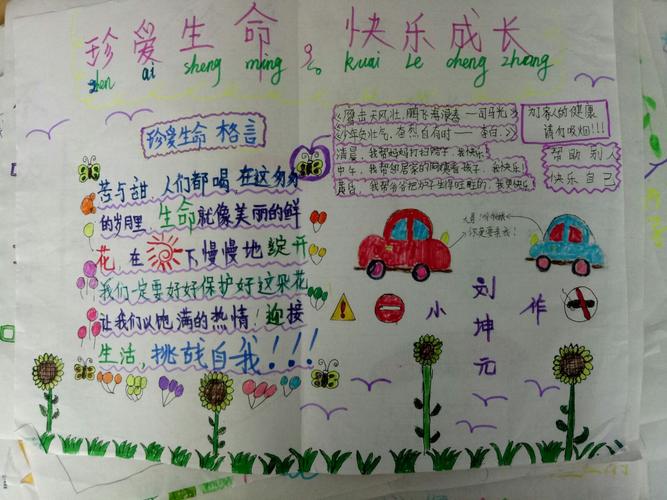 珍爱生命,快乐成长
zhen ai sheng ming kuai Le cheng zhang
珍爱生命 格言
苦与甜,人们都喝,在这匆匆
的岁月里,生命就像美丽的鲜
花,在 下慢慢地绽开
我们一定要好好保护好这朵花
让我们以饱满的热情!迎接
生活,挑战自我!!!
《鹰击天风壮,鹏飞海浪春 —司马光》
《少年负壮气,奋烈自有时 —李白。》
清晨,我帮妈妈打扫院子,我快乐
中午,我帮邻居家的阿姨看孩子,我快乐
黄昏,我帮爷爷把炉子生得旺旺的,我更快乐
为家人的健康
请勿吸烟!!!
帮助别人
快乐自己
小 刘坤元 作